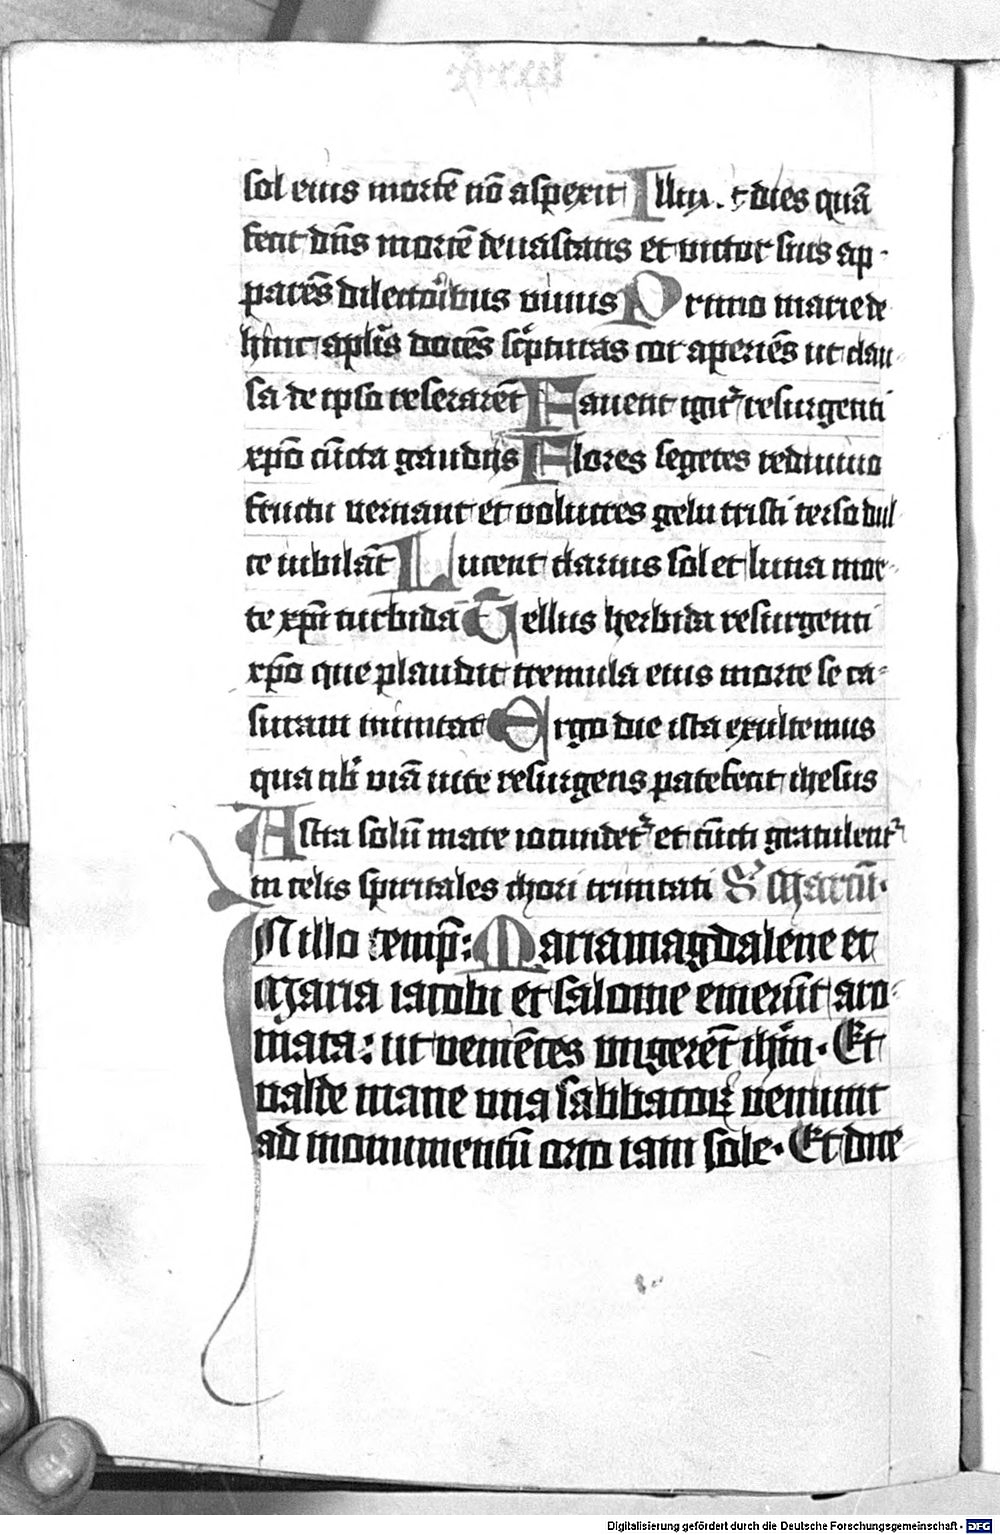 sol eius mortē nō aspexit Illux t dies quā
fecit dn̄s mortē deuastans et victor suis ap-
parēs dilectoribus viuus Primo marie de
hinc aplīs docēs scͥpturas cor aperiēs ut clau-
sa de ipso reserarēt Fauent igit᷑ resurgenti
xp̄o cūcta gaudijs Flores segetes rediuiuo
fructu vernant et volucres gelu tristi terso dul
ce iubilāt Lucent clarius sol et luna mor-
te xpī turbida Tellus herbida resurgenti
xp̄o que plaudit tremula eius morte se ca-
suram minitat Ergo die ista exultemus
qua nb̄ viā vite resurgens patefecit ihesus
Astra solū mare iocundet᷑ et cūcti gratulent᷑
in celis spiritales chori trinitati S Marcū.
IN illo temp̄: Maria magdalene et
Maria iacobi et salome emerūt aro-
mata: ut veniētes ungerēt ihm̄. Et
valde mane una sabbatoꝝ veniunt
ad monumentū orto iam sole. Et dice
Digitalisierung gefördert durch die Deutsche Forschungsgemeinschaft - DFG